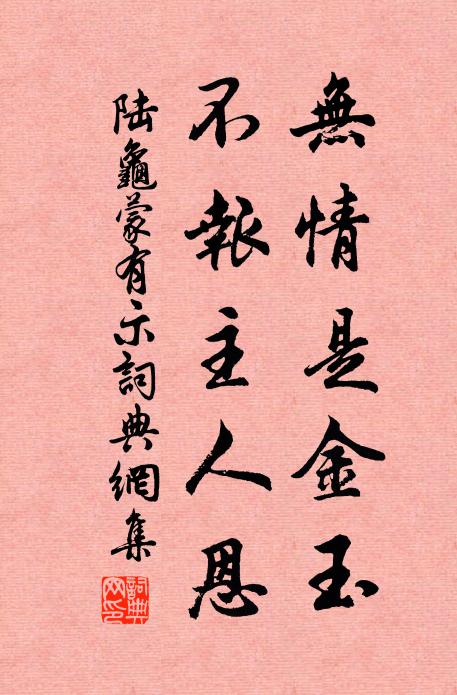 無情是金玉
不報主人恩
陆龜蒙有示詞典網集
詞典
网印